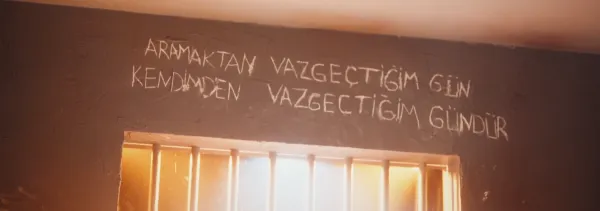 ARAMAKTAN VAZGEÇTİĞİM GÜN
KENDİMDEN VAZGEÇTİĞİM GÜNDÜR